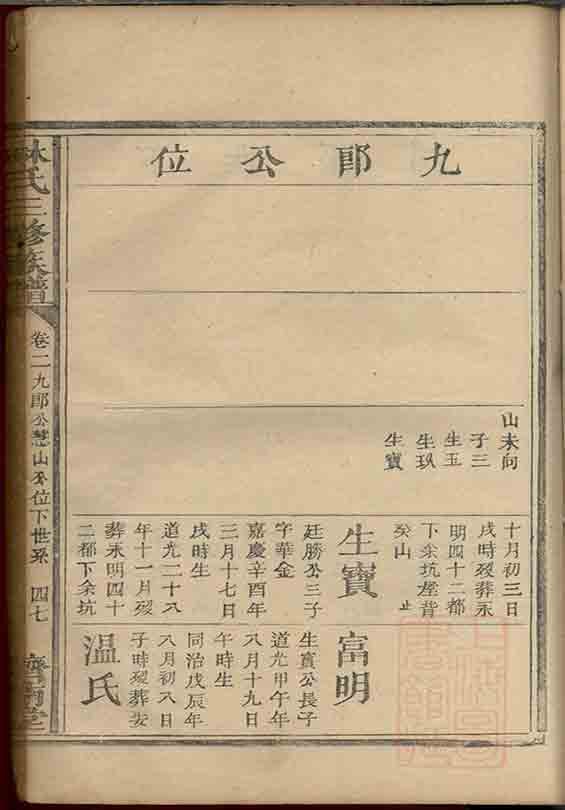 九郎公位
山未向
子三
生玉
生玖
生寶
十月初三日
戌時歿葬永
明四十二都
下余坑屋背
癸山
生寶
廷勝公三子
字華金
嘉慶辛酉年
三月十七日
戌時生
道光二十八
年十一月歿
葬永明四十
二都下余坑
富明
生寶公長子
道光甲午年
八月十九日
午時生
同治戊辰年
八月初八日
子時歿葬安
溫氏
林氏三修族譜
卷二九郎公慧山公位下世系 四七